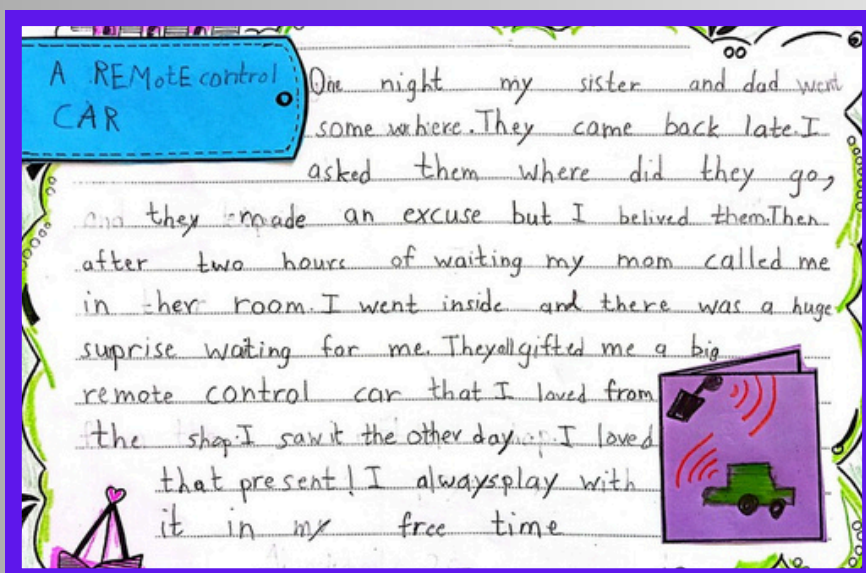 A REMotE control
CAR
One night my sister and dad went
some whiere. They came back late. I
asked them where did they go,
and they made an excuse but I belived them. Then
after two hours of waiting my mom called me
in her room. I went inside and there was a huge
suprise wating for me. They all gifted me a big
remote control car that I loved from
the shop. I saw it the other day. I loved
that present! I always play with
it in my free time